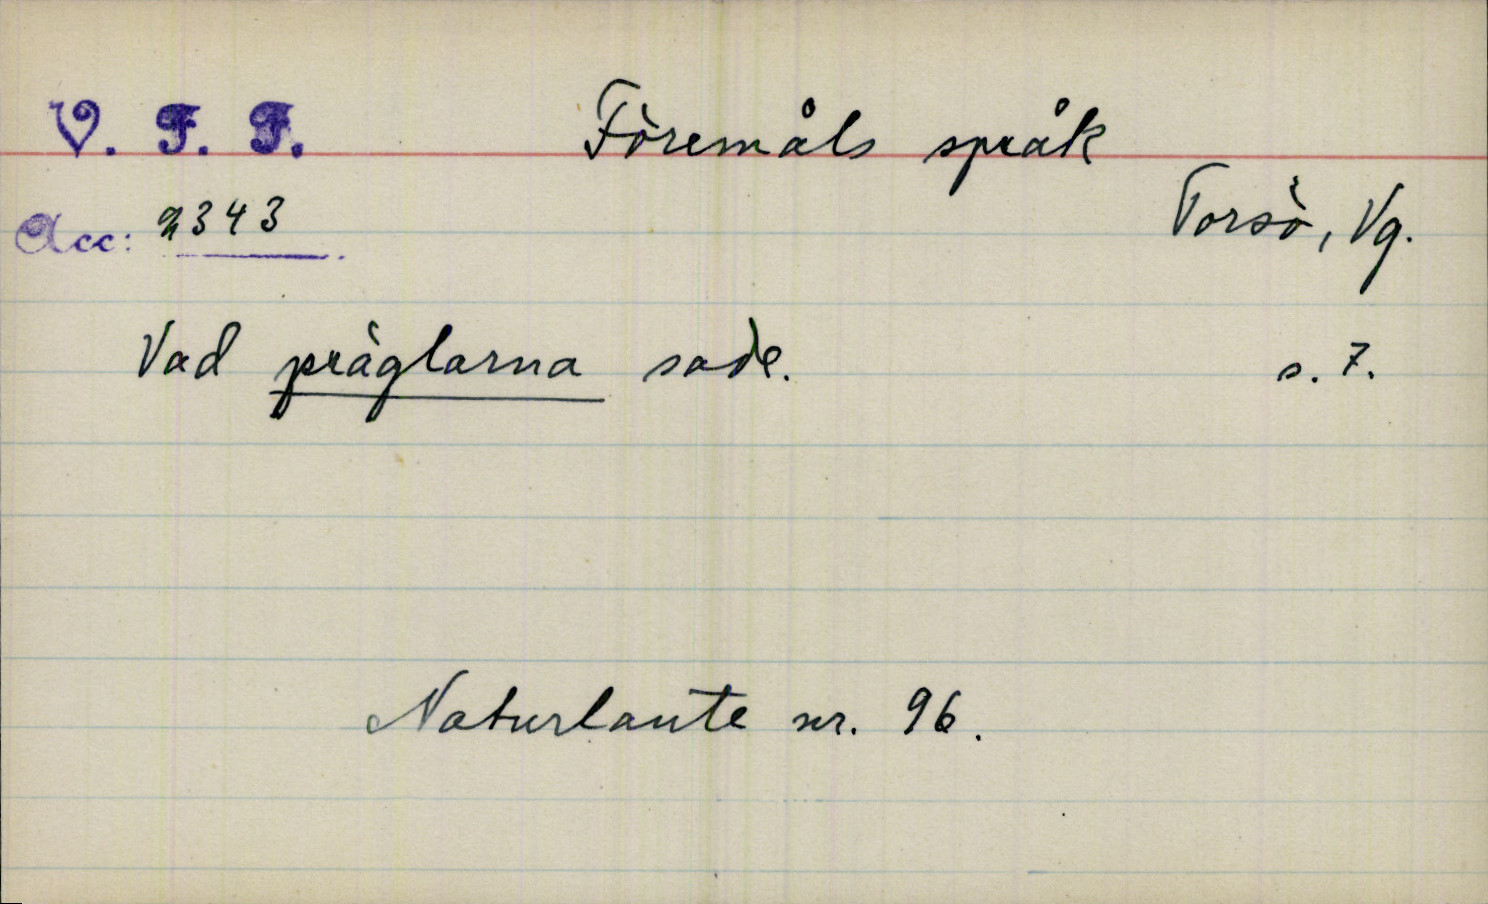 V. F. F. Föremåls språk
Acc: 2343 Torsö, Vg.
Vad präglarna sade. s. 7.
Naturlaute nr. 96.